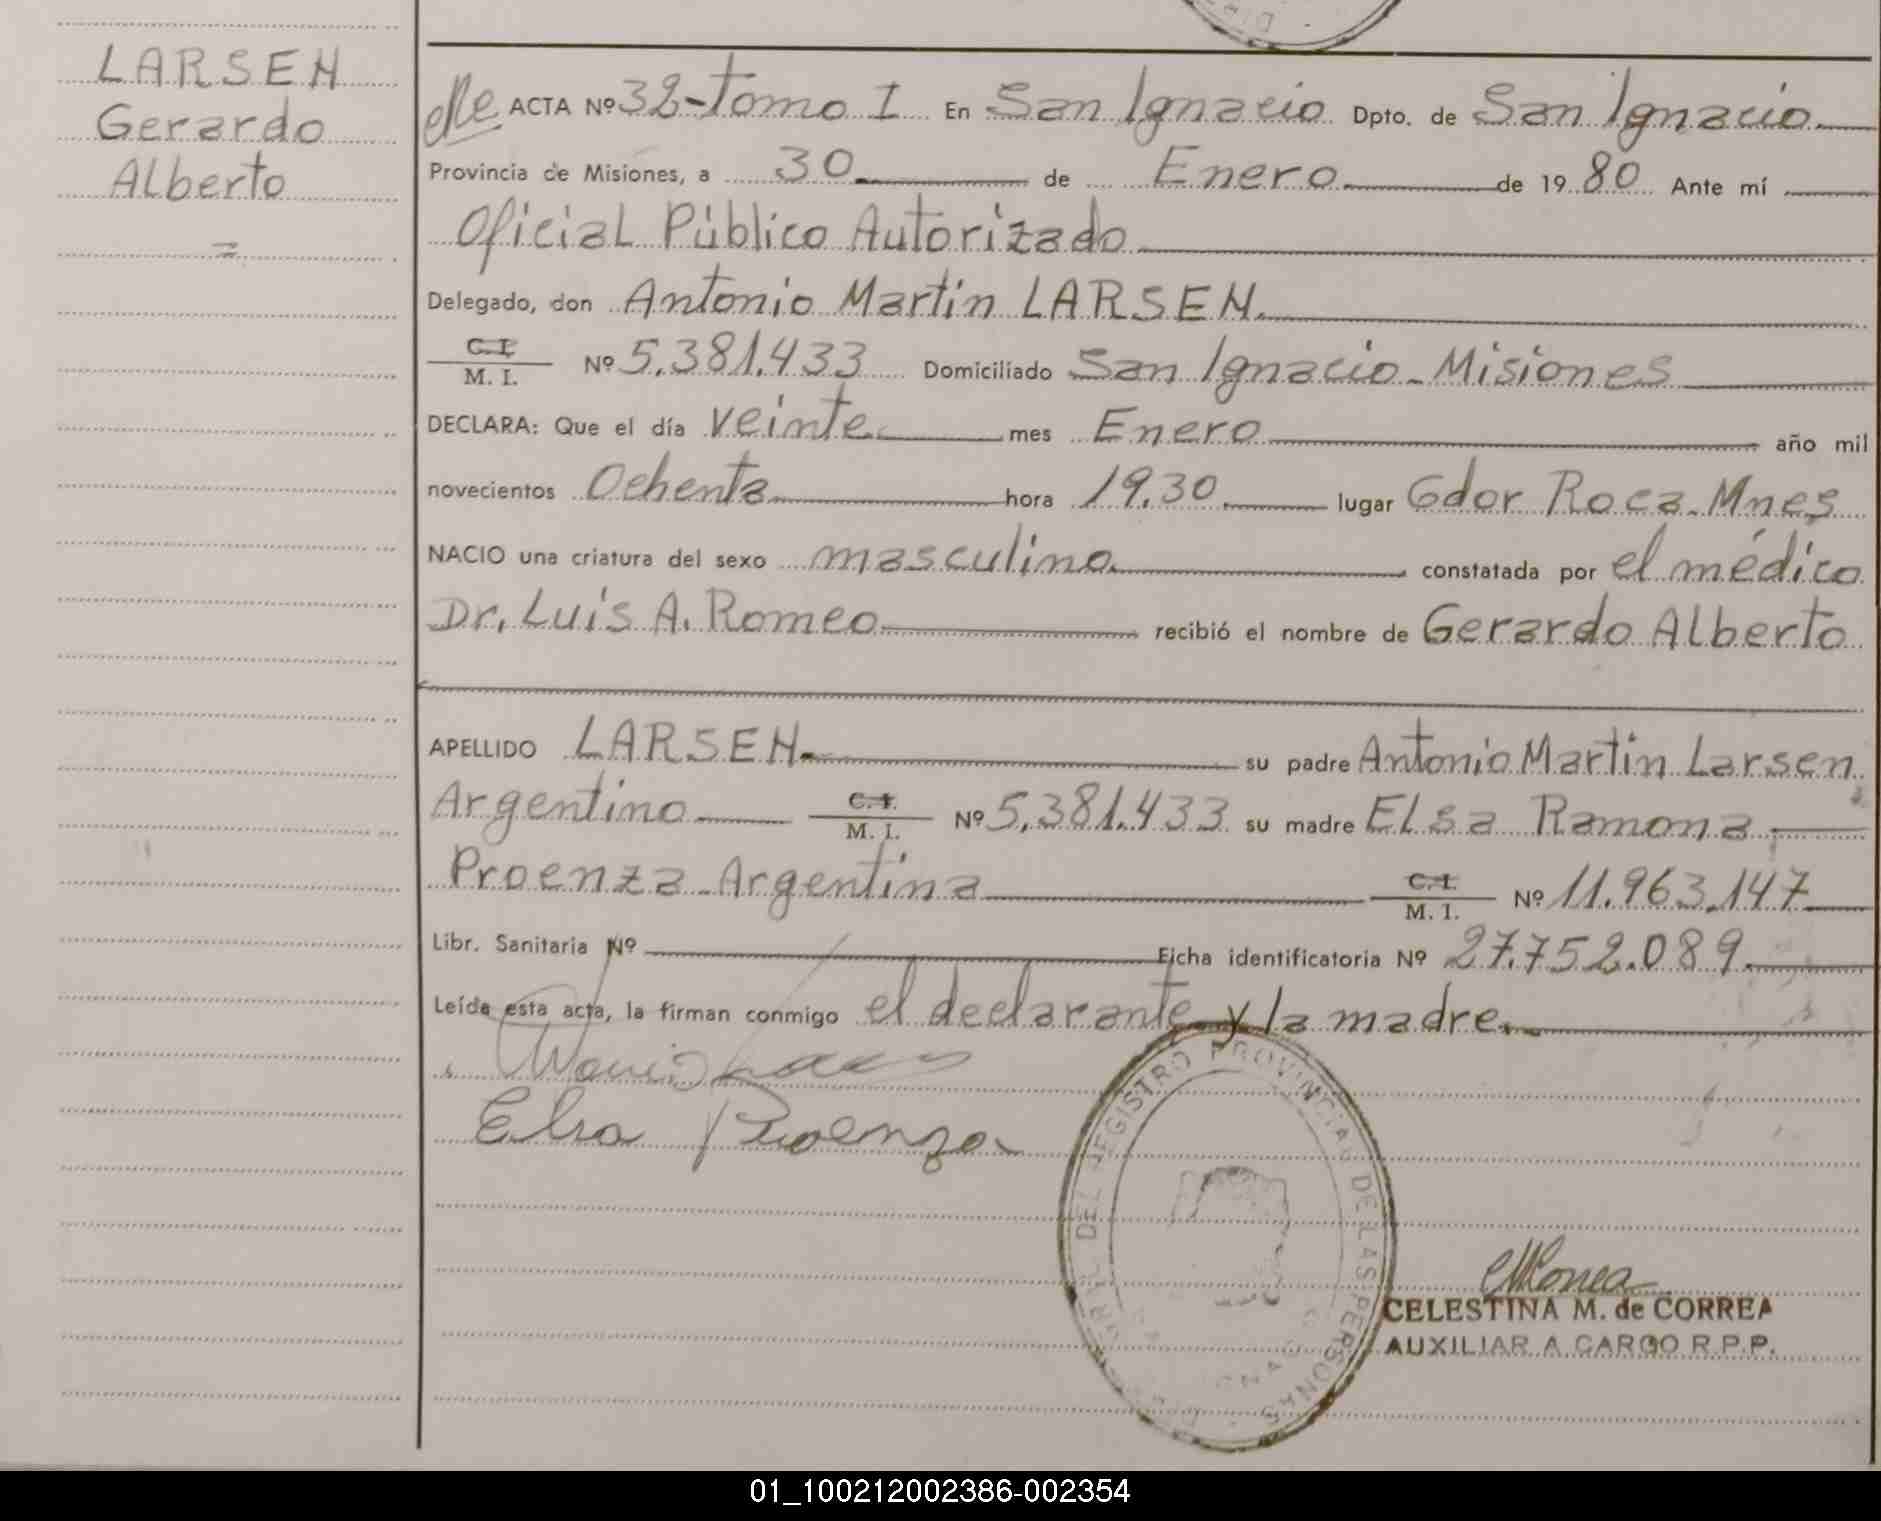 LARSEN
Gerardo
Alberto
ACTA Nº 32-Tomo I En San Ignacio Dpto. de San Ignacio
Provincia de Misiones, a 30 de Enero de 1980 Ante mí
Oficial Público Autorizado
Delegado, don Antonio Martin LARSEN.
C.I.
M. I. Nº 5.381.433 Domiciliado San Ignacio-Misiones
DECLARA: Que el día veinte mes Enero año mil
novecientos Ochenta hora 19.30 lugar Gdor Roca-Mnes
NACIO una criatura del sexo masculino constatada por el médico
Dr. Luis A. Romeo recibió el nombre de Gerardo Alberto
APELLIDO LARSEN su padre Antonio Martin Larsen
Argentino C.I. M. I. Nº 5.381.433 su madre Elsa Ramona
Proenza-Argentina C.I. M. I. Nº 11.963.147
Libr. Sanitaria Nº Ficha identificatoria Nº 27.752.089
Leída esta acta, la firman conmigo el declarante y la madre.
Elsa Proenza
DEL REGISTRO PROVINCIAL DE LAS PERSONAS
CELESTINA M. de CORREA
AUXILIAR A CARGO R.P.P.
01_100212002386-002354